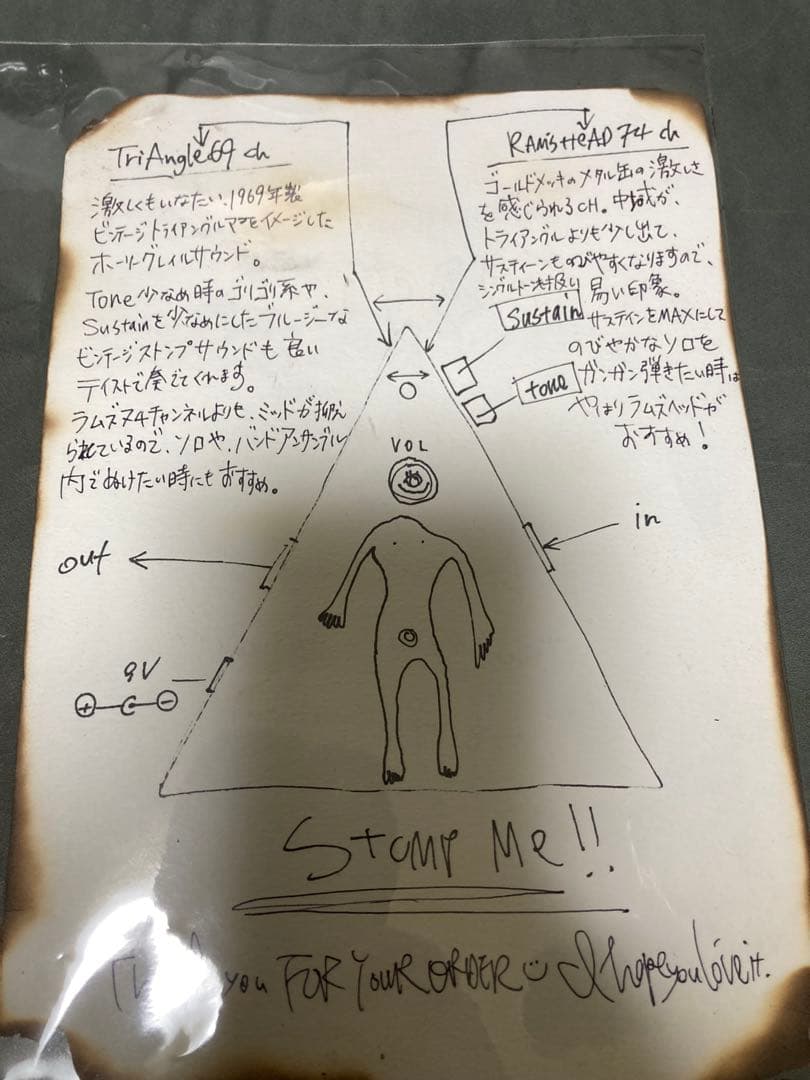 TriAngle69 ch
激しくもいなたい、1969年製
ビンテージトライアングルマフをイメージした
ホーリーグレイルサウンド。
Tone少なめ時のゴリゴリ系や、
Sustainを少なめにしたブルージーな
ビンテージストンプサウンドも良い
テイストで奏でてくれます。
ラムズ74チャンネルよりも、ミッドが抑え
られているので、ソロや、バンドアンサンブル
内でぬけたい時にもおすすめ。
RAM'S HeAD 74 ch
ゴールドメッキのメタル缶の激しさ
を感じられるCH。中域が、
トライアングルよりも少し出て、
サスティーンものびやすくなりますので、
シングルトーンも扱い
易い印象。
サステインをMAXにして
のびやかなソロを
ガンガン弾きたい時は
やはりラムズヘッドが
おすすめ!
Sustain
tone
VOL
in
out
9V
+ −
Stomp Me!!
Thank you FOR YOUR ORDER I hope you love it.